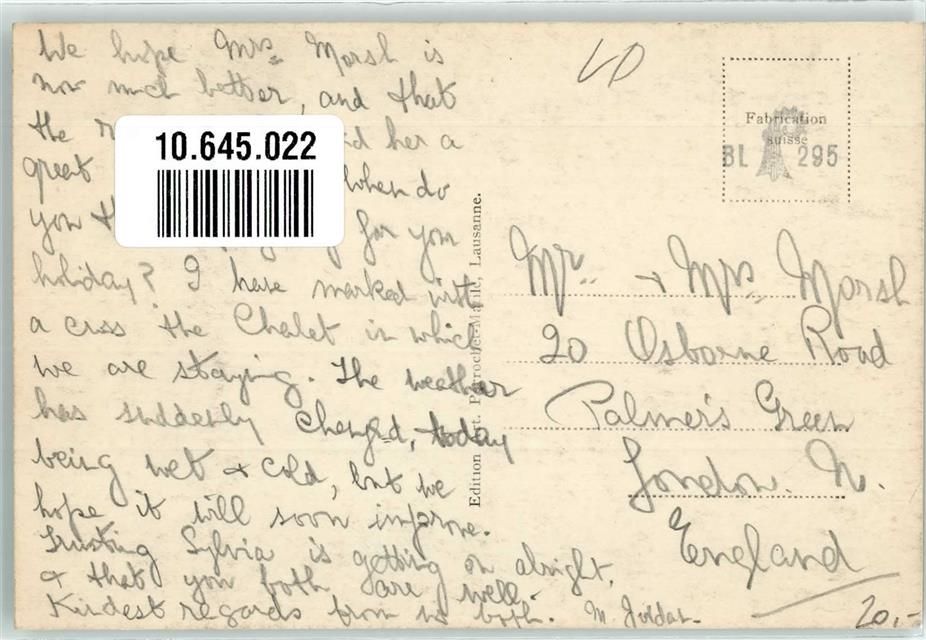 We hope Mrs Marsh is
now much better, and that
the her a
great When do
you for your
holiday? I have marked with
a cross the Chalet in which
we are staying. The weather
has suddenly changed, today
being wet & cold, but we
hope it will soon improve.
Trusting Sylvia is getting on alright,
& that you both are well.
Kindest regards from us both. M. Jordan
10.645.022
Edition Art. Perrochet-Matile, Lausanne.
Fabrication
suisse
BL 295
Mr & Mrs Marsh
20 Osborne Road
Palmer's Green
London. N.
England
20.-